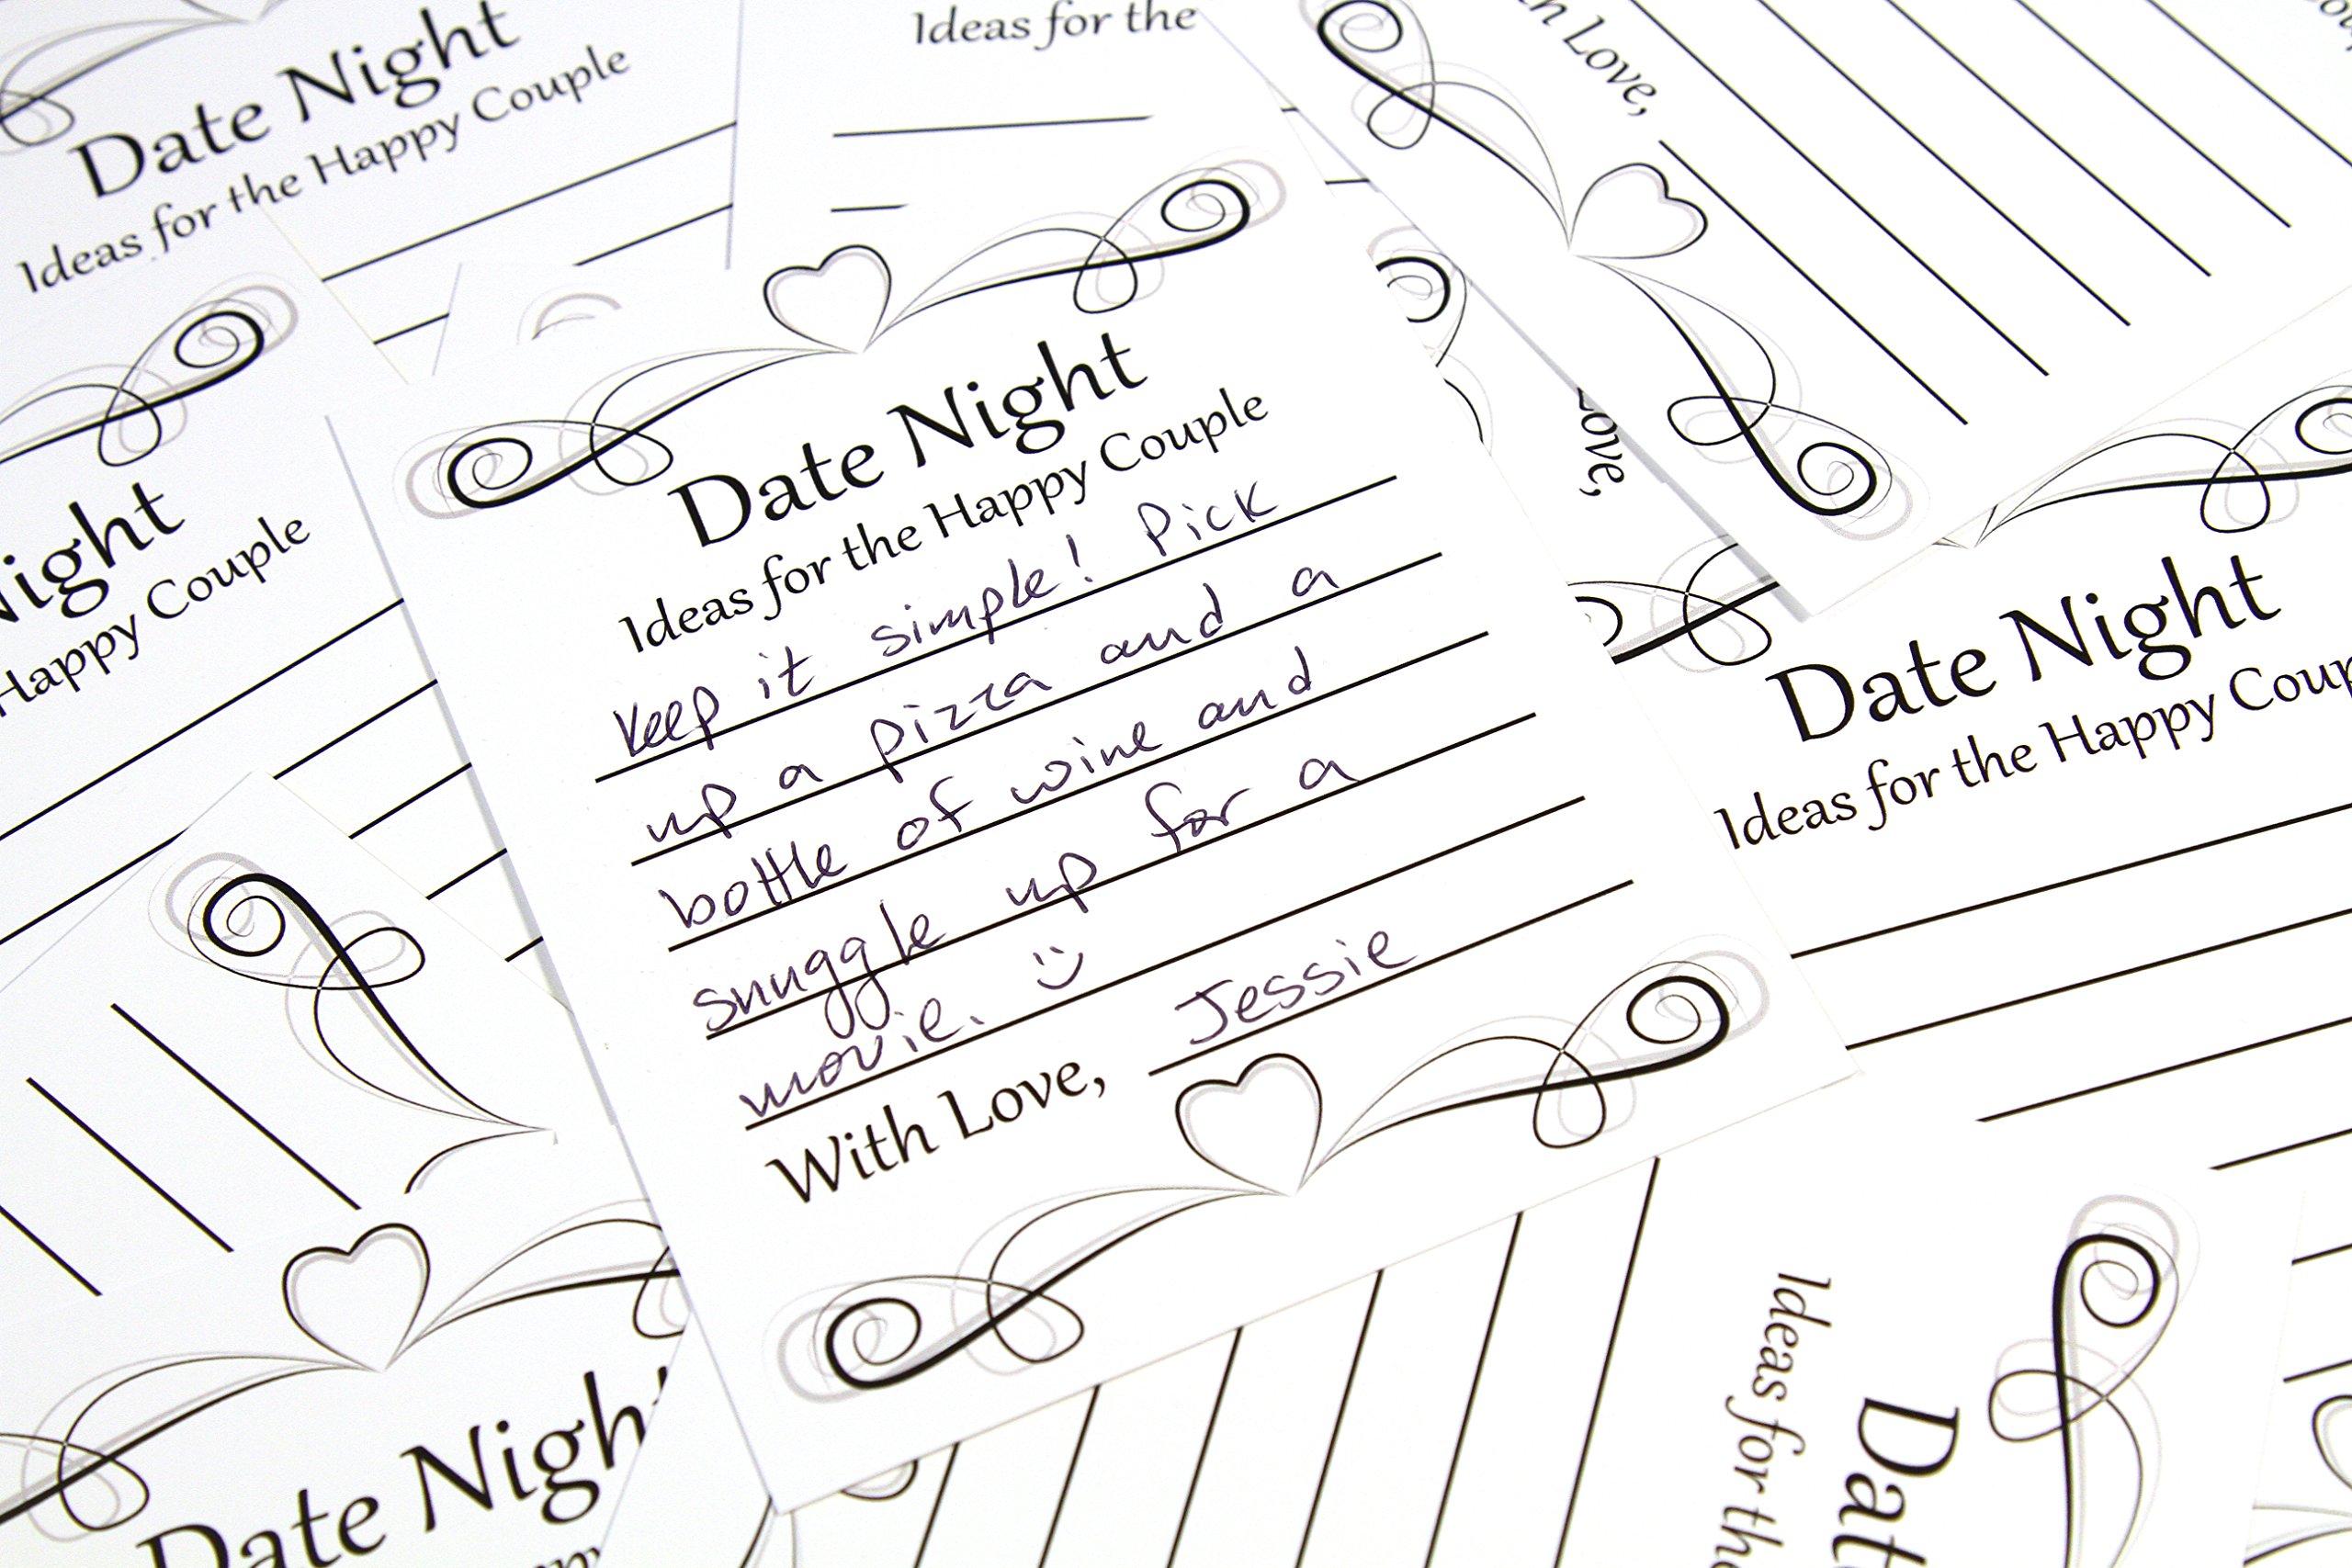 Date Night
Ideas for the Happy Couple
Ideas for the
th Love,
Night
Happy Couple
Date Night
Ideas for the Happy Couple
Keep it simple! Pick
up a pizza and a
bottle of wine and
snuggle up for a
movie. :)
With Love, Jessie
Love,
Date Night
Ideas for the Happy Coup
Date Nigh
Ideas for th
Dat